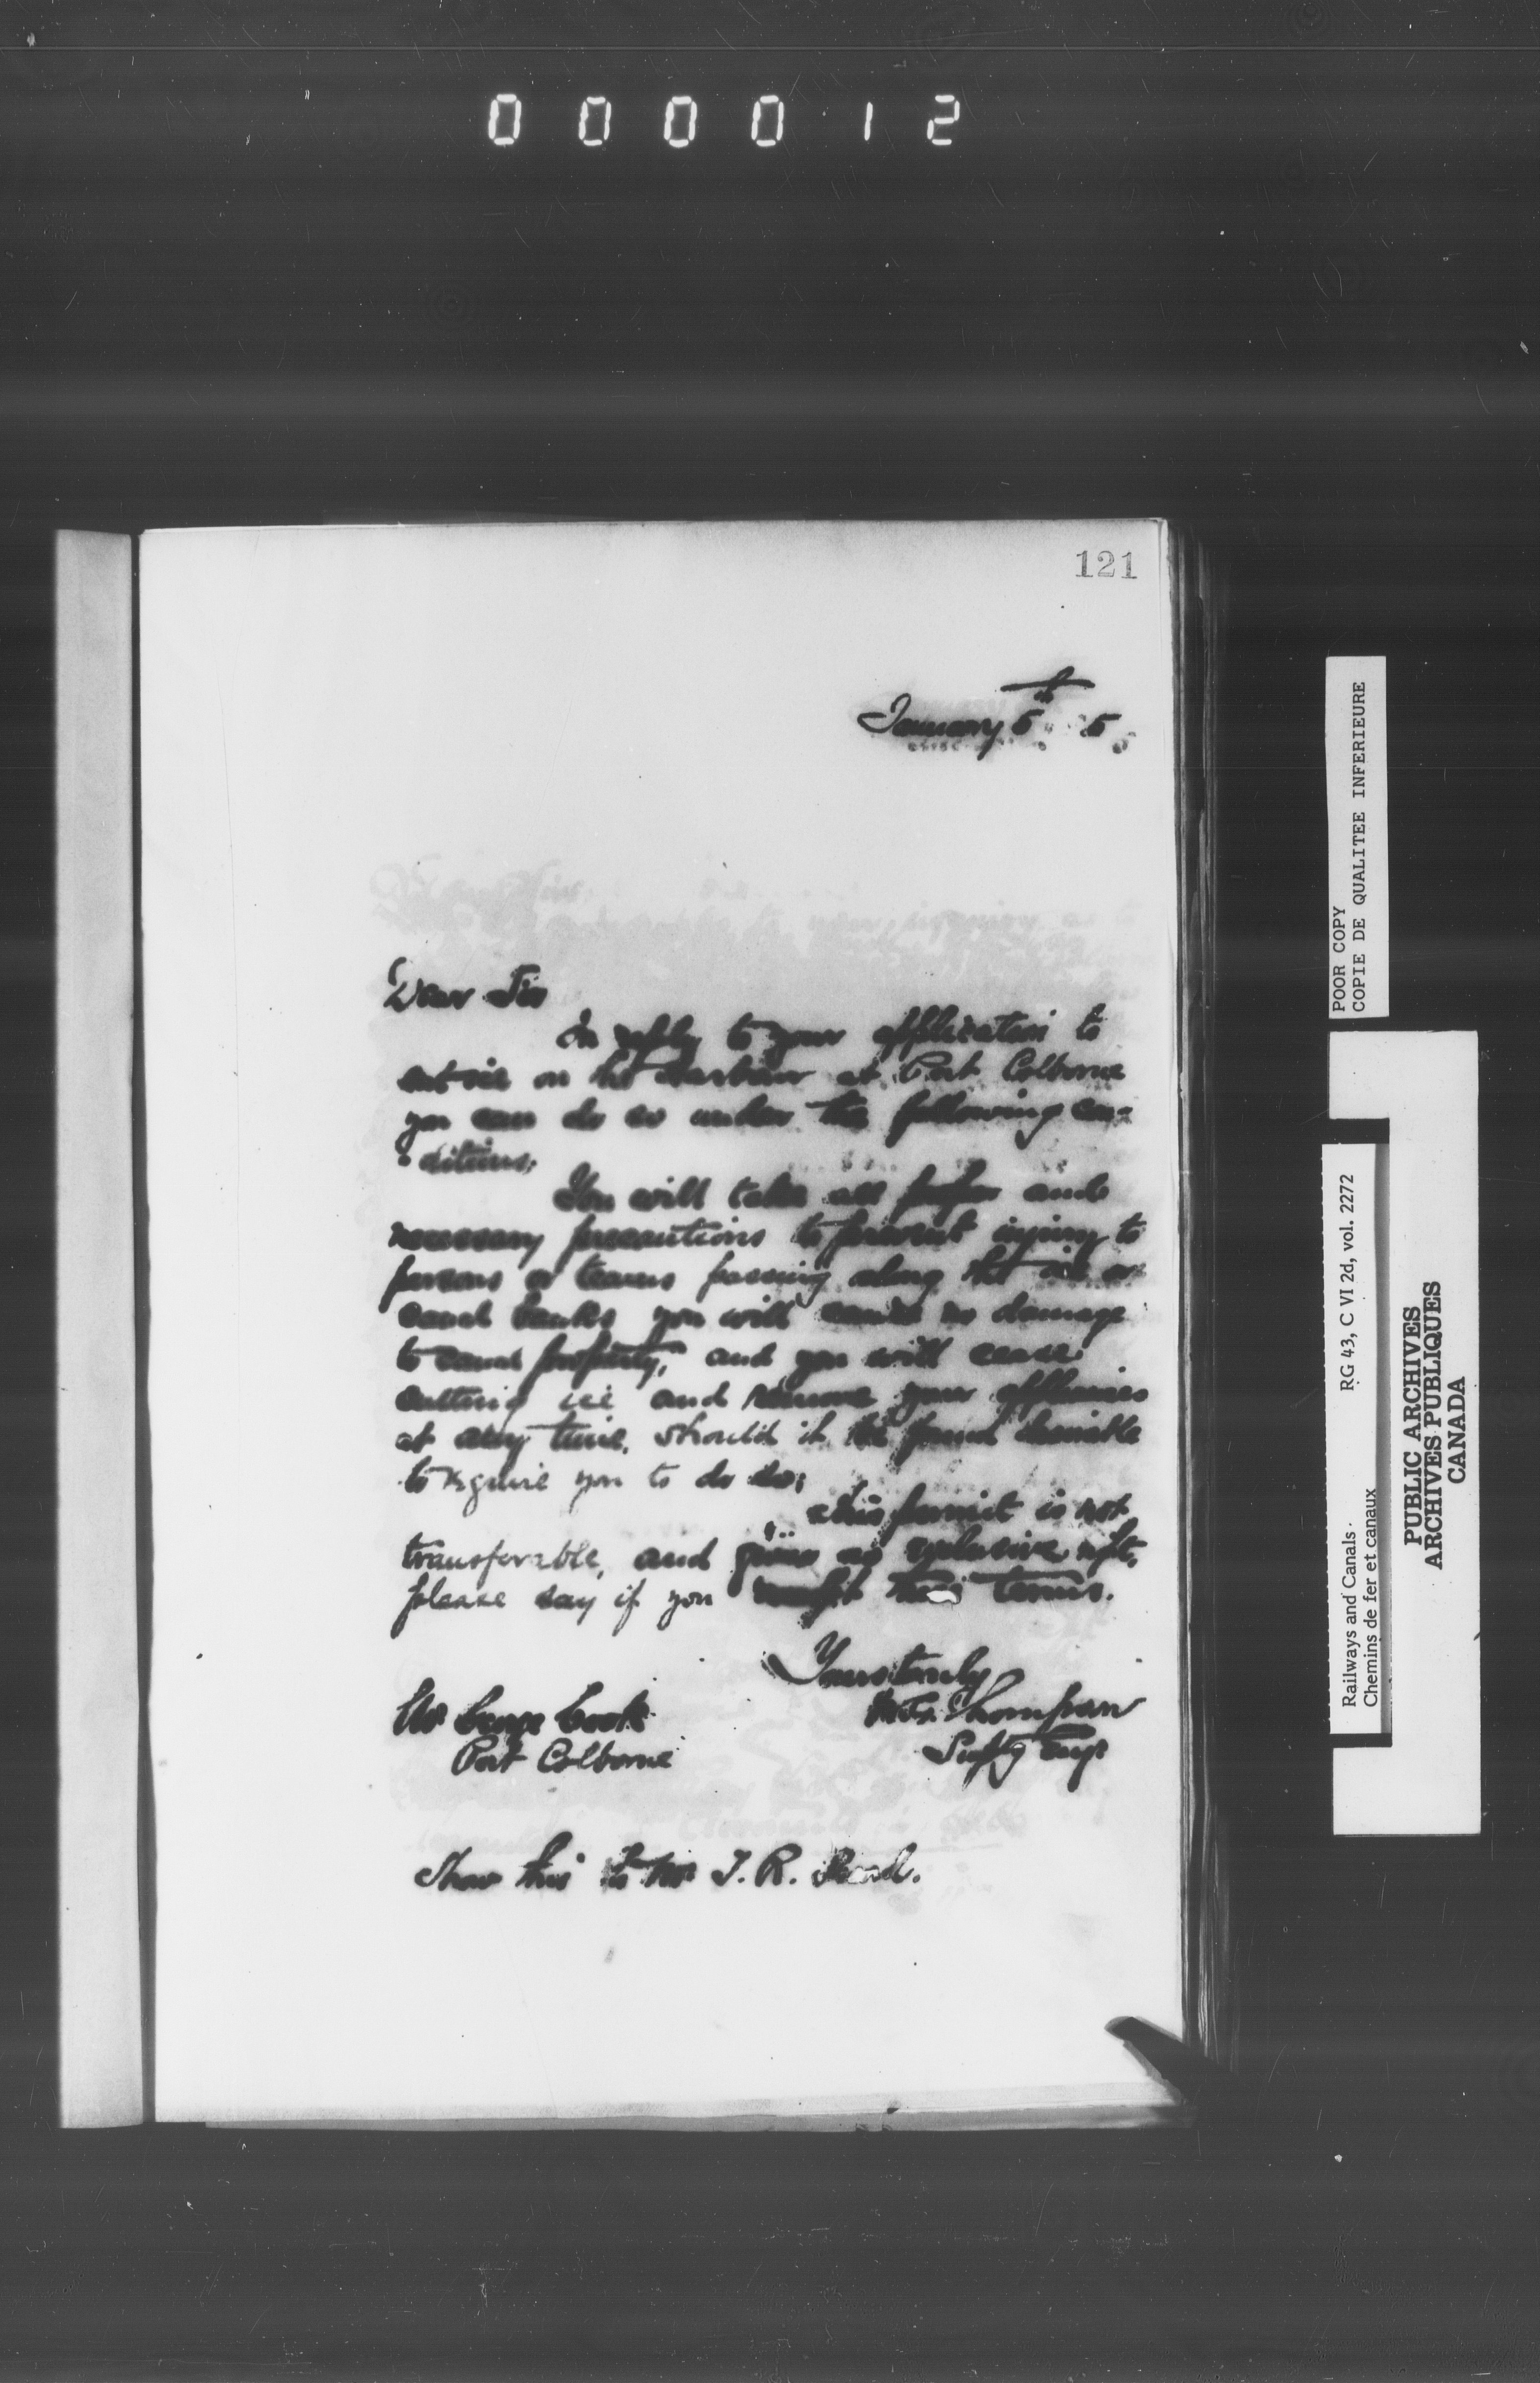 000012
121
January 5th
Dear Sir
In reply to your application to
cut ice on the harbour at Port Colborne
you can do so under the following con-
ditions;
You will take all proper and
necessary precautions to prevent injury to
persons or teams passing along the ice or
canal banks you will cause no damage
to canal property, and you will cease
cutting ice and remove your appliances
at any time, should it be found desirable
to require you to do so;
This permit is not
transferable, and gives no exclusive right,
please say if you accept these terms.
Yours truly
Thompson
Supty Engr
Mr George Cook
Port Colborne
Show this to Mr J. R.
POOR COPY
COPIE DE QUALITEE INFERIEURE
Railways and Canals
RG 43, C VI 2d, vol. 2272
Chemins de fer et canaux
PUBLIC ARCHIVES
ARCHIVES PUBLIQUES
CANADA